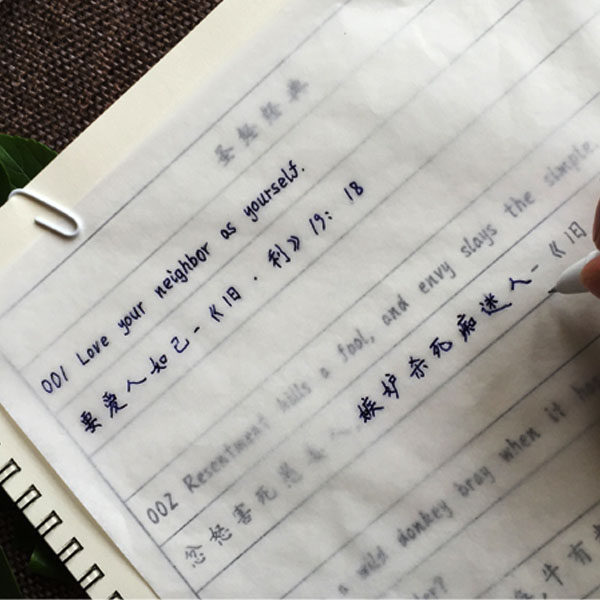 圣经经典
001 Love your neighbor as yourself.
要爱人如己-《旧·利》19:18
002 Resentment kills a fool, and envy slays the simple.
忿怒害死愚妄人,嫉妒杀死痴迷人-《旧
a wild donkey bray when it ha
牛有